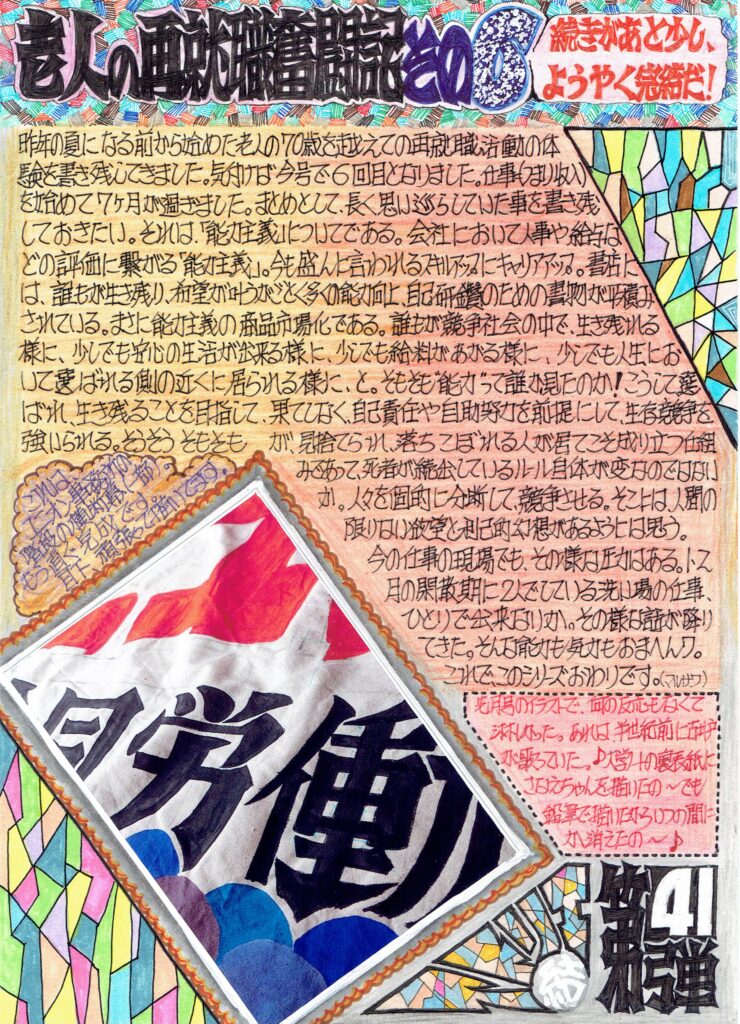 老人の再就職奮闘記その6
続きがあと少し、
ようやく完結だ！
昨年の夏になる前から始めた老人の70歳を越えての再就職活動の体
験を書き残してきました。気付けば今号で6回目となりました。仕事(つまり収入)
を始めて7ヶ月が過ぎました。まとめとして、長く思い巡らしていた事を書き残
しておきたい。それは、「能力主義」についてである。会社において人事や給与な
どの評価に繋がる「能力主義」。今も盛んに言われるスキルアップにキャリアアップ。書店に
は、誰もが生き残り、希望が叶うがごとく多くの能力向上、自己研鑽のための書物が平積み
されている。まさに能力主義の商品市場化である。誰もが競争社会の中で、生き残れる
様に、少しでも安心の生活が出来る様に、少しでも給料があがる様に、少しでも人生にお
いて選ばれる側の近くに居られる様に、と。そもそも"能力"って誰が見たのか！こうして選
ばれ、生き残ることを目指して、果てしなく、自己責任や自助努力を前提にして、生存競争を
強いられる。そうそう そもそも が、見捨てられ、落ちこぼれる人が居てこそ成り立つ仕組
みであって、死者が続出しているルール自体が変なのではない
か。人々を個的に分断して、競争させる。そこには、人間の
限りない欲望と利己的幻想があるようには思う。
今の仕事の現場でも、その様な圧力はある。トス
月の閑散期に2人でしている洗い場の仕事、
ひとりで出来ないか。その様な話が降り
てきた。そんな能力も気力もおまへんワ。
これで、このシリーズおわりです。(マルサワ)
これは、
先月号のイラストで、何の反応もなくて
さみしかった。あれは、半世紀前に古井戸
が歌っていた。♪大学ノートの裏表紙に
さなえちゃんを描いたの〜でも
鉛筆で描いたからいつの間に
か消えたの〜♪
労働
結
第41弾